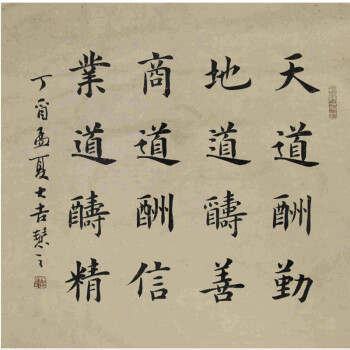 天道酬勤
地道酬善
商道酬信
業道酬精
丁酉孟夏大吉慧之